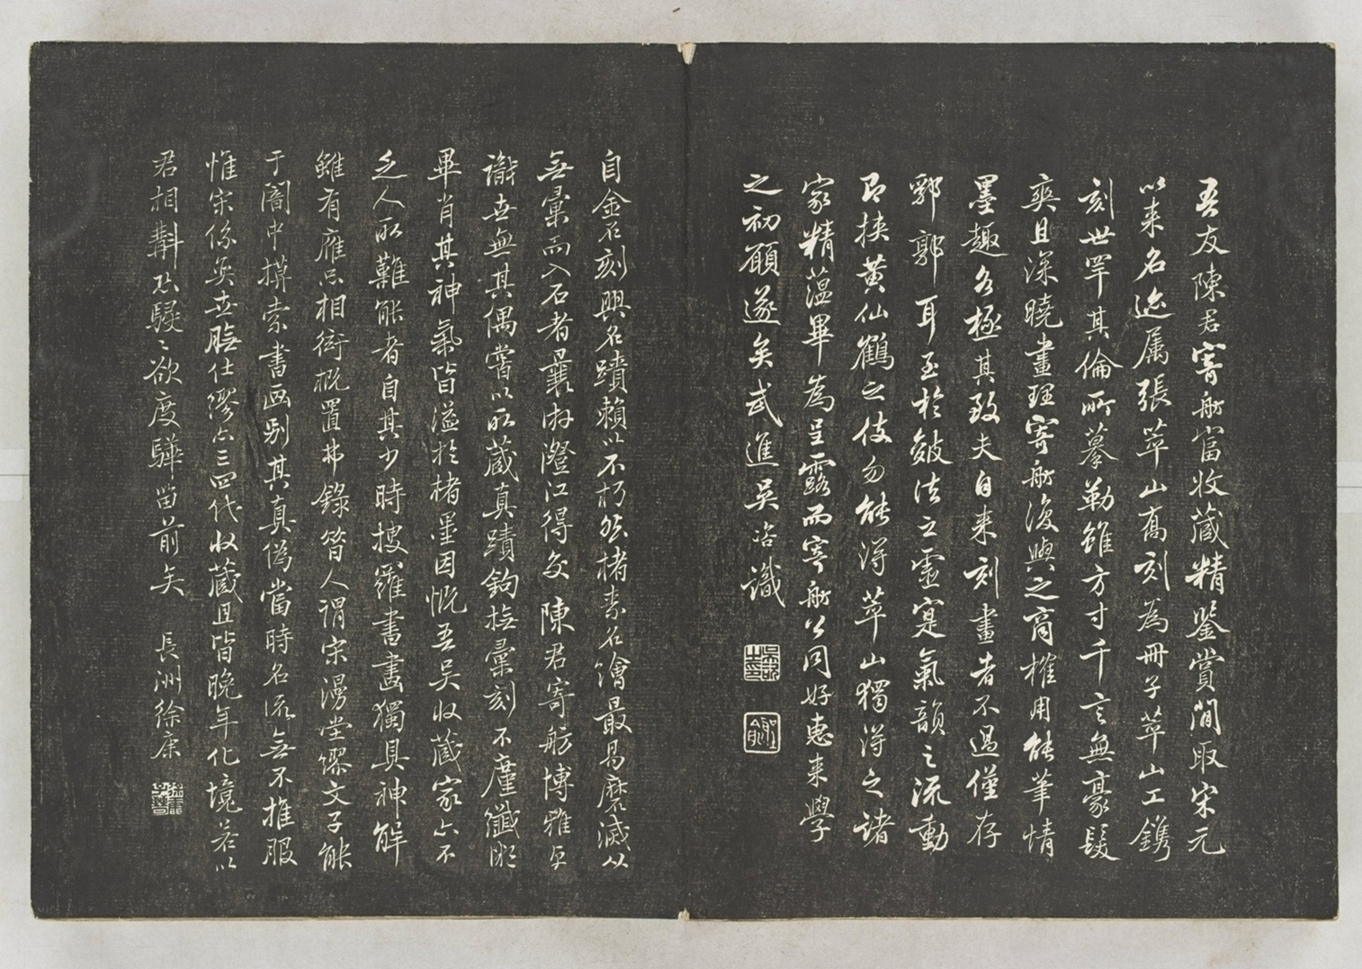 吾友陳君寄舫富收藏精鑒賞間取宋元
以来名迹属張苹山髙刻為冊子苹山工鐫
刻世罕其倫所摹勒雖方寸千言無豪髮
爽且深曉畫理寄舫復與之商榷用能筆情
墨趣各極其致夫自来刻畫者不過僅存
郛郭耳至於皴法之靈寔氣韻之流動
即挟黄仙鶴之伎勿能淂苹山獨淂之諸
家精蕰畢為呈露而寄舫公同好惠来學
之初願遂矣武進吴咨識
自金石刻興名蹟賴以不朽然楮素名繪最易磨滅从
無彙而入石者曩游澄江得交陳君寄舫博雅
識世無其偶嘗以所蔵真蹟鈎橅彙刻不廑纖
畢肖其神氣皆溢於楮墨因慨吾吴收蔵家亦不
乏人所難能者自其少時搜羅書畫獨具神解
雖有雁只相衒概置弗錄昔人謂宋漫堂繆文子能
于闇中摸索書画别其真偽當時名流無不推服
惟宋係奕世膴仕繆亦三四代收蔵且皆晚年化境若以
君相斠然駸〻欲度驊畱前矣 長洲徐康